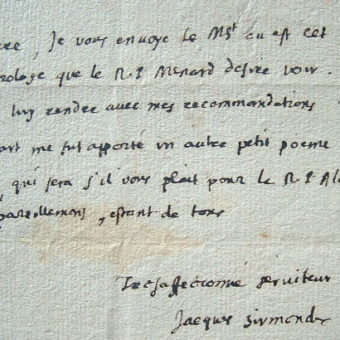 , Je vous envoye le Mst ou est cet
que le R. P. Menard desire voir.
luy rendre avec mes recommandations
me fut apporté un autre petit poeme
, qui sera s'il vous plait pour le R. P. Al
pareillement, estant de tous
Tresaffectionné serviteur
Jacques Sirmond